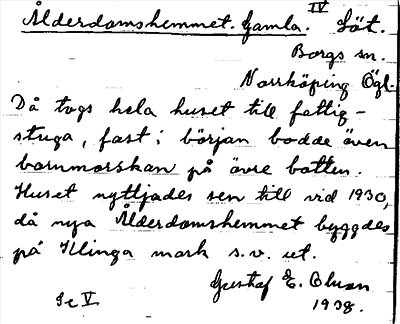 Ålderdomshemmet. Gamla. IV Löt.
Borgs sn.
Norrköping Ögl.
Då togs hela huset till fattig-
stuga, fast i början bodde även
barnmorskan på övre botten.
Huset nyttjades sen till vid 1930,
då nya Ålderdomshemmet byggdes
på Klinga mark s.v. ut.
Gustaf E. Oluson
Se V. 1938.